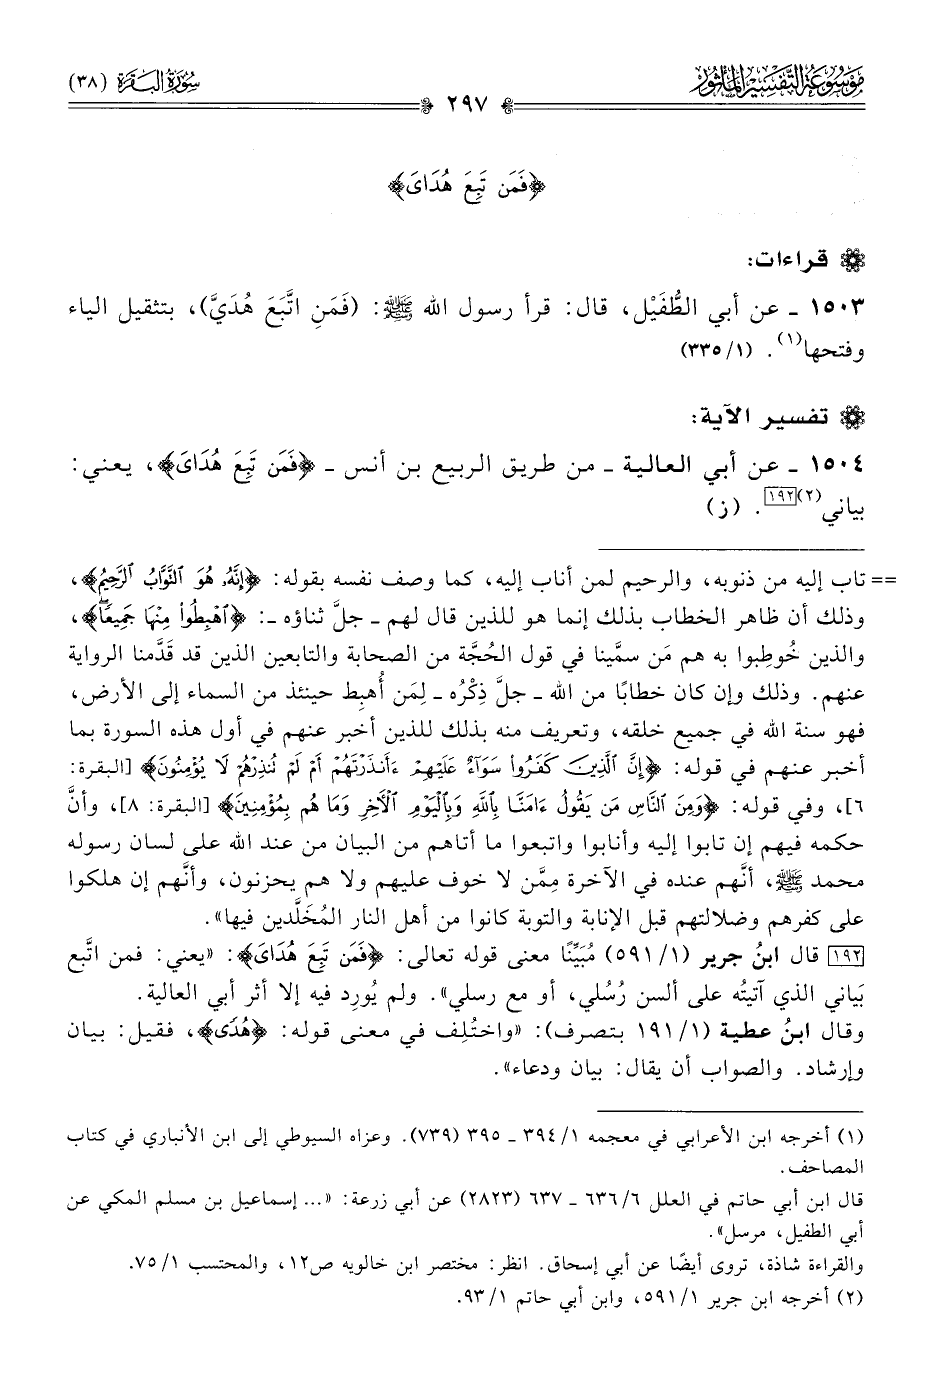 مَوْسُوعَةُ التَّفْسِيرِ المَأْثُورِ
سُورَةُ البَقَرَةِ (٣٨)
٢٩٧
﴿فَمَن تَبِعَ هُدَايَ﴾
قراءات:
١٥٠٣ ـ عن أبي الطُّفَيْل، قال: قرأ رسول الله ﷺ: (فَمَنِ اتَّبَعَ هُدَيَّ)، بتثقيل الياء
وفتحها(١). (١/ ٣٣٥)
تفسير الآية:
١٥٠٤ ـ عن أبي العالية ـ من طريق الربيع بن أنس ـ ﴿فَمَن تَبِعَ هُدَايَ﴾، يعني:
بياني(٢)[١٩٢]. (ز)
== تاب إليه من ذنوبه، والرحيم لمن أناب إليه، كما وصف نفسه بقوله: ﴿إِنَّهُۥ هُوَ ٱلتَّوَّابُ ٱلرَّحِيمُ﴾،
وذلك أن ظاهر الخطاب بذلك إنما هو للذين قال لهم ـ جلَّ ثناؤه ـ: ﴿ٱهْبِطُوا۟ مِنْهَا جَمِيعًا﴾،
والذين خُوطِبوا به هم مَن سمَّينا في قول الحُجَّة من الصحابة والتابعين الذين قد قَدَّمنا الرواية
عنهم. وذلك وإن كان خطابًا من الله ـ جلَّ ذِكْرُه ـ لِمَن أُهبِط حينئذ من السماء إلى الأرض،
فهو سنة الله في جميع خلقه، وتعريف منه بذلك للذين أخبر عنهم في أول هذه السورة بما
أخبر عنهم في قوله: ﴿إِنَّ ٱلَّذِينَ كَفَرُوا۟ سَوَآءٌ عَلَيْهِمْ ءَأَنذَرْتَهُمْ أَمْ لَمْ تُنذِرْهُمْ لَا يُؤْمِنُونَ﴾ [البقرة:
٦]، وفي قوله: ﴿وَمِنَ ٱلنَّاسِ مَن يَقُولُ ءَامَنَّا بِٱللَّهِ وَبِٱلْيَوْمِ ٱلْأَخِرِ وَمَا هُم بِمُؤْمِنِينَ﴾ [البقرة: ٨]، وأنَّ
حكمه فيهم إن تابوا إليه وأنابوا واتبعوا ما أتاهم من البيان من عند الله على لسان رسوله
محمد ﷺ، أنَّهم عنده في الآخرة مِمَّن لا خوف عليهم ولا هم يحزنون، وأنَّهم إن هلكوا
على كفرهم وضلالتهم قبل الإنابة والتوبة كانوا من أهل النار المُخَلَّدين فيها».
[١٩٢] قال ابنُ جرير (١/ ٥٩١) مُبَيِّنًا معنى قوله تعالى: ﴿فَمَن تَبِعَ هُدَايَ﴾: «يعني: فمن اتَّبع
بَياني الذي آتيتُه على ألسن رُسُلي، أو مع رسلي». ولم يُورِد فيه إلا أثر أبي العالية.
وقال ابنُ عطية (١/ ١٩١ بتصرف): «واختُلِف في معنى قوله: ﴿هُدًى﴾، فقيل: بيان
وإرشاد. والصواب أن يقال: بيان ودعاء».
(١) أخرجه ابن الأعرابي في معجمه ١/ ٣٩٤ ـ ٣٩٥ (٧٣٩). وعزاه السيوطي إلى ابن الأنباري في كتاب
المصاحف.
قال ابن أبي حاتم في العلل ٦/ ٦٣٦ ـ ٦٣٧ (٢٨٢٣) عن أبي زرعة: «... إسماعيل بن مسلم المكي عن
أبي الطفيل، مرسل».
والقراءة شاذة، تروى أيضًا عن أبي إسحاق. انظر: مختصر ابن خالويه ص١٢، والمحتسب ١/ ٧٥.
(٢) أخرجه ابن جرير ١/ ٥٩١، وابن أبي حاتم ١/ ٩٣.